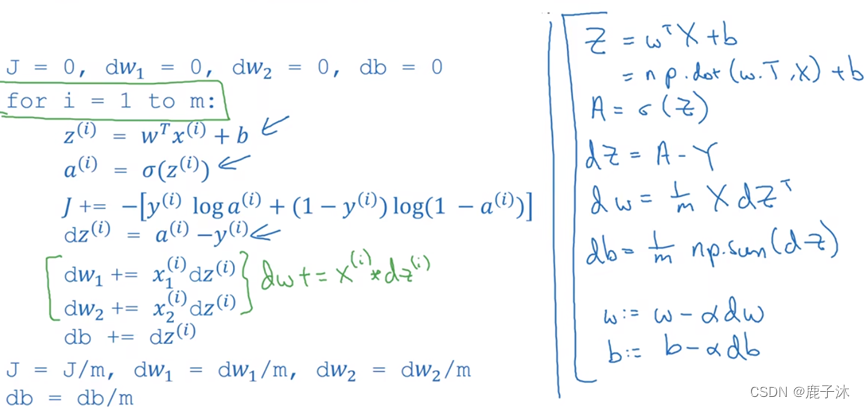 J = 0, dw₁ = 0, dw₂ = 0, db = 0
for i = 1 to m:
z⁽ⁱ⁾ = wᵀx⁽ⁱ⁾ + b
a⁽ⁱ⁾ = σ(z⁽ⁱ⁾)
J += −[y⁽ⁱ⁾ log a⁽ⁱ⁾ + (1 − y⁽ⁱ⁾) log(1 − a⁽ⁱ⁾)]
dz⁽ⁱ⁾ = a⁽ⁱ⁾ − y⁽ⁱ⁾
dw₁ += x₁⁽ⁱ⁾dz⁽ⁱ⁾
dw₂ += x₂⁽ⁱ⁾dz⁽ⁱ⁾
dw += x⁽ⁱ⁾ * dz⁽ⁱ⁾
db += dz⁽ⁱ⁾
J = J/m, dw₁ = dw₁/m, dw₂ = dw₂/m
db = db/m
Z = wᵀX + b
= np.dot(w.T, X) + b
A = σ(Z)
dZ = A − Y
dw = 1/m X dZᵀ
db = 1/m np.sum(dZ)
w := w − αdw
b := b − αdb
CSDN @鹿子沐